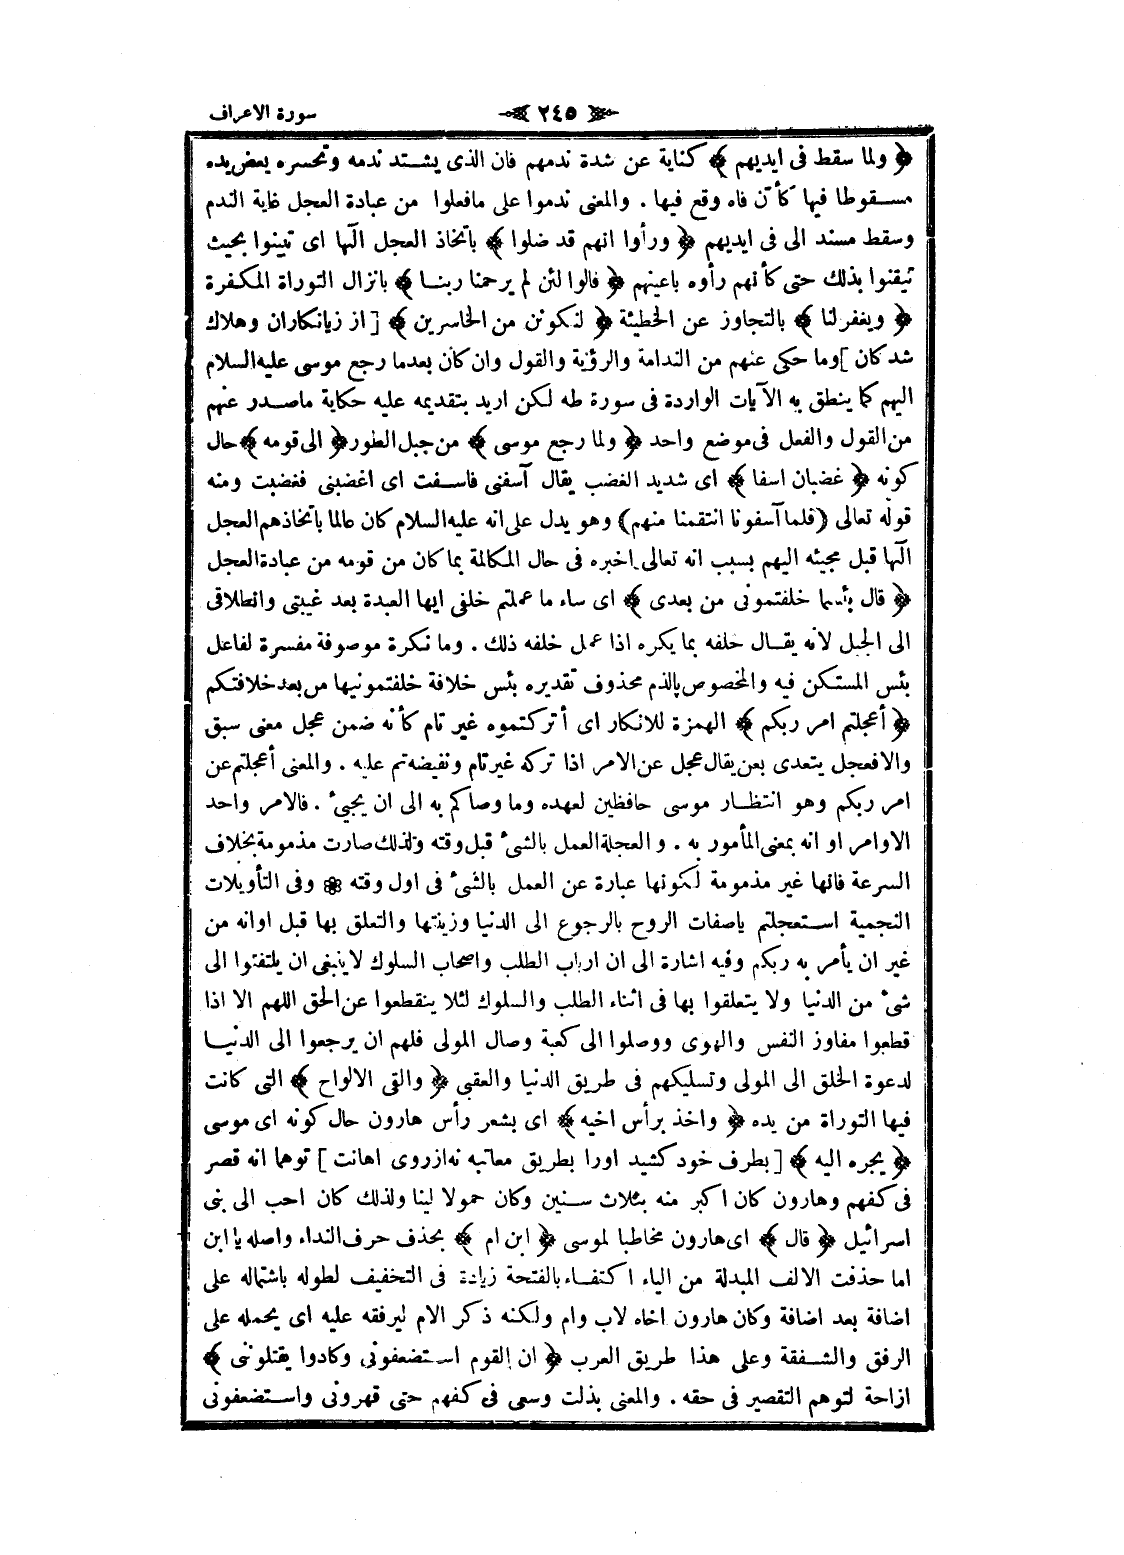 سورة الاعراف
٢٤٥
﴿ ولما سقط فى ايديهم ﴾ كناية عن شدة ندمهم فان الذى يشتد ندمه وتحسره يعض يده
مسقوطا فيها كأن فاه وقع فيها . والمعنى ندموا على مافعلوا من عبادة العجل غاية الندم
وسقط مسند الى فى ايديهم ﴿ ورأوا انهم قد ضلوا ﴾ باتخاذ العجل الها اى تبينوا بحيث
تيقنوا بذلك حتى كأنهم رأوه باعينهم ﴿ قالوا لئن لم يرحمنا ربنا ﴾ بانزال التوراة المكفرة
﴿ ويغفر لنا ﴾ بالتجاوز عن الخطيئة ﴿ لنكونن من الخاسرين ﴾ [از زيانكاران وهلاك
شد كان] وما حكى عنهم من الندامة والرؤية والقول وان كان بعدما رجع موسى عليه السلام
اليهم كما ينطق به الآيات الواردة فى سورة طه لكن اريد بتقديمه عليه حكاية ماصدر عنهم
من القول والفعل فى موضع واحد ﴿ ولما رجع موسى ﴾ من جبل الطور ﴿ الى قومه ﴾ حال
كونه ﴿ غضبان اسفا ﴾ اى شديد الغضب يقال آسفنى فاسفت اى اغضبنى فغضبت ومنه
قوله تعالى (فلما آسفونا انتقمنا منهم) وهو يدل على انه عليه السلام كان عالما باتخاذهم العجل
الها قبل مجيئه اليهم بسبب انه تعالى اخبره فى حال المكالمة بما كان من قومه من عبادة العجل
﴿ قال بئسما خلفتمونى من بعدى ﴾ اى ساء ما عملتم خلفى ايها العبدة بعد غيبتى وانطلاقى
الى الجبل لانه يقال خلفه بما يكره اذا عمل خلفه ذلك . وما نكرة موصوفة مفسرة لفاعل
بئس المستكن فيه والمخصوص بالذم محذوف تقديره بئس خلافة خلفتمونيها من بعد خلافتكم
﴿ أعجلتم امر ربكم ﴾ الهمزة للانكار اى أتركتموه غير تام كأنه ضمن عجل معنى سبق
والافعجل يتعدى بعن يقال عجل عن الامر اذا تركه غير تام ونقيضه تم عليه . والمعنى أعجلتم عن
امر ربكم وهو انتظار موسى حافظين لعهده وما وصاكم به الى ان يجيئ . فالامر واحد
الاوامر او انه بمعنى المأمور به . والعجلة العمل بالشئ قبل وقته ولذلك صارت مذمومة بخلاف
السرعة فانها غير مذمومة لكونها عبارة عن العمل بالشئ فى اول وقته ❁ وفى التأويلات
النجمية استعجلتم ياصفات الروح بالرجوع الى الدنيا وزينتها والتعلق بها قبل اوانه من
غير ان يأمر به ربكم وفيه اشارة الى ان ارباب الطلب واصحاب السلوك لاينبغى ان يلتفتوا الى
شئ من الدنيا ولا يتعلقوا بها فى اثناء الطلب والسلوك لئلا ينقطعوا عن الحق اللهم الا اذا
قطعوا مفاوز النفس والهوى ووصلوا الى كعبة وصال المولى فلهم ان يرجعوا الى الدنيا
لدعوة الخلق الى المولى وتسليكهم فى طريق الدنيا والعقبى ﴿ والقى الالواح ﴾ التى كانت
فيها التوراة من يده ﴿ واخذ برأس اخيه ﴾ اى بشعر رأس هارون حال كونه اى موسى
﴿ يجره اليه ﴾ [بطرف خود كشيد اورا بطريق معاتبه نه ازروى اهانت] توهما انه قصر
فى كفهم وهارون كان اكبر منه بثلاث سنين وكان حمولا لينا ولذلك كان احب الى بنى
اسرائيل ﴿ قال ﴾ اى هارون مخاطبا لموسى ﴿ ابن ام ﴾ بحذف حرف النداء واصله يا ابن
اما حذفت الالف المبدلة من الياء اكتفاء بالفتحة زيادة فى التخفيف لطوله باشتماله على
اضافة بعد اضافة وكان هارون اخاه لاب وام ولكنه ذكر الام ليرفقه عليه اى يحمله على
الرفق والشفقة وعلى هذا طريق العرب ﴿ ان القوم استضعفونى وكادوا يقتلوننى ﴾
ازاحة لتوهم التقصير فى حقه . والمعنى بذلت وسعى فى كفهم حتى قهرونى واستضعفونى